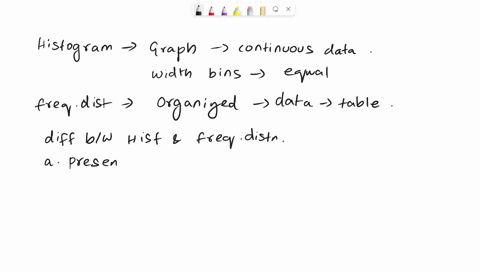 Histogram → Graph → continuous data.
width bins → equal
freq.dist → Organized → data → table.
diff b/w Hist & freq.distn.
a. Presen